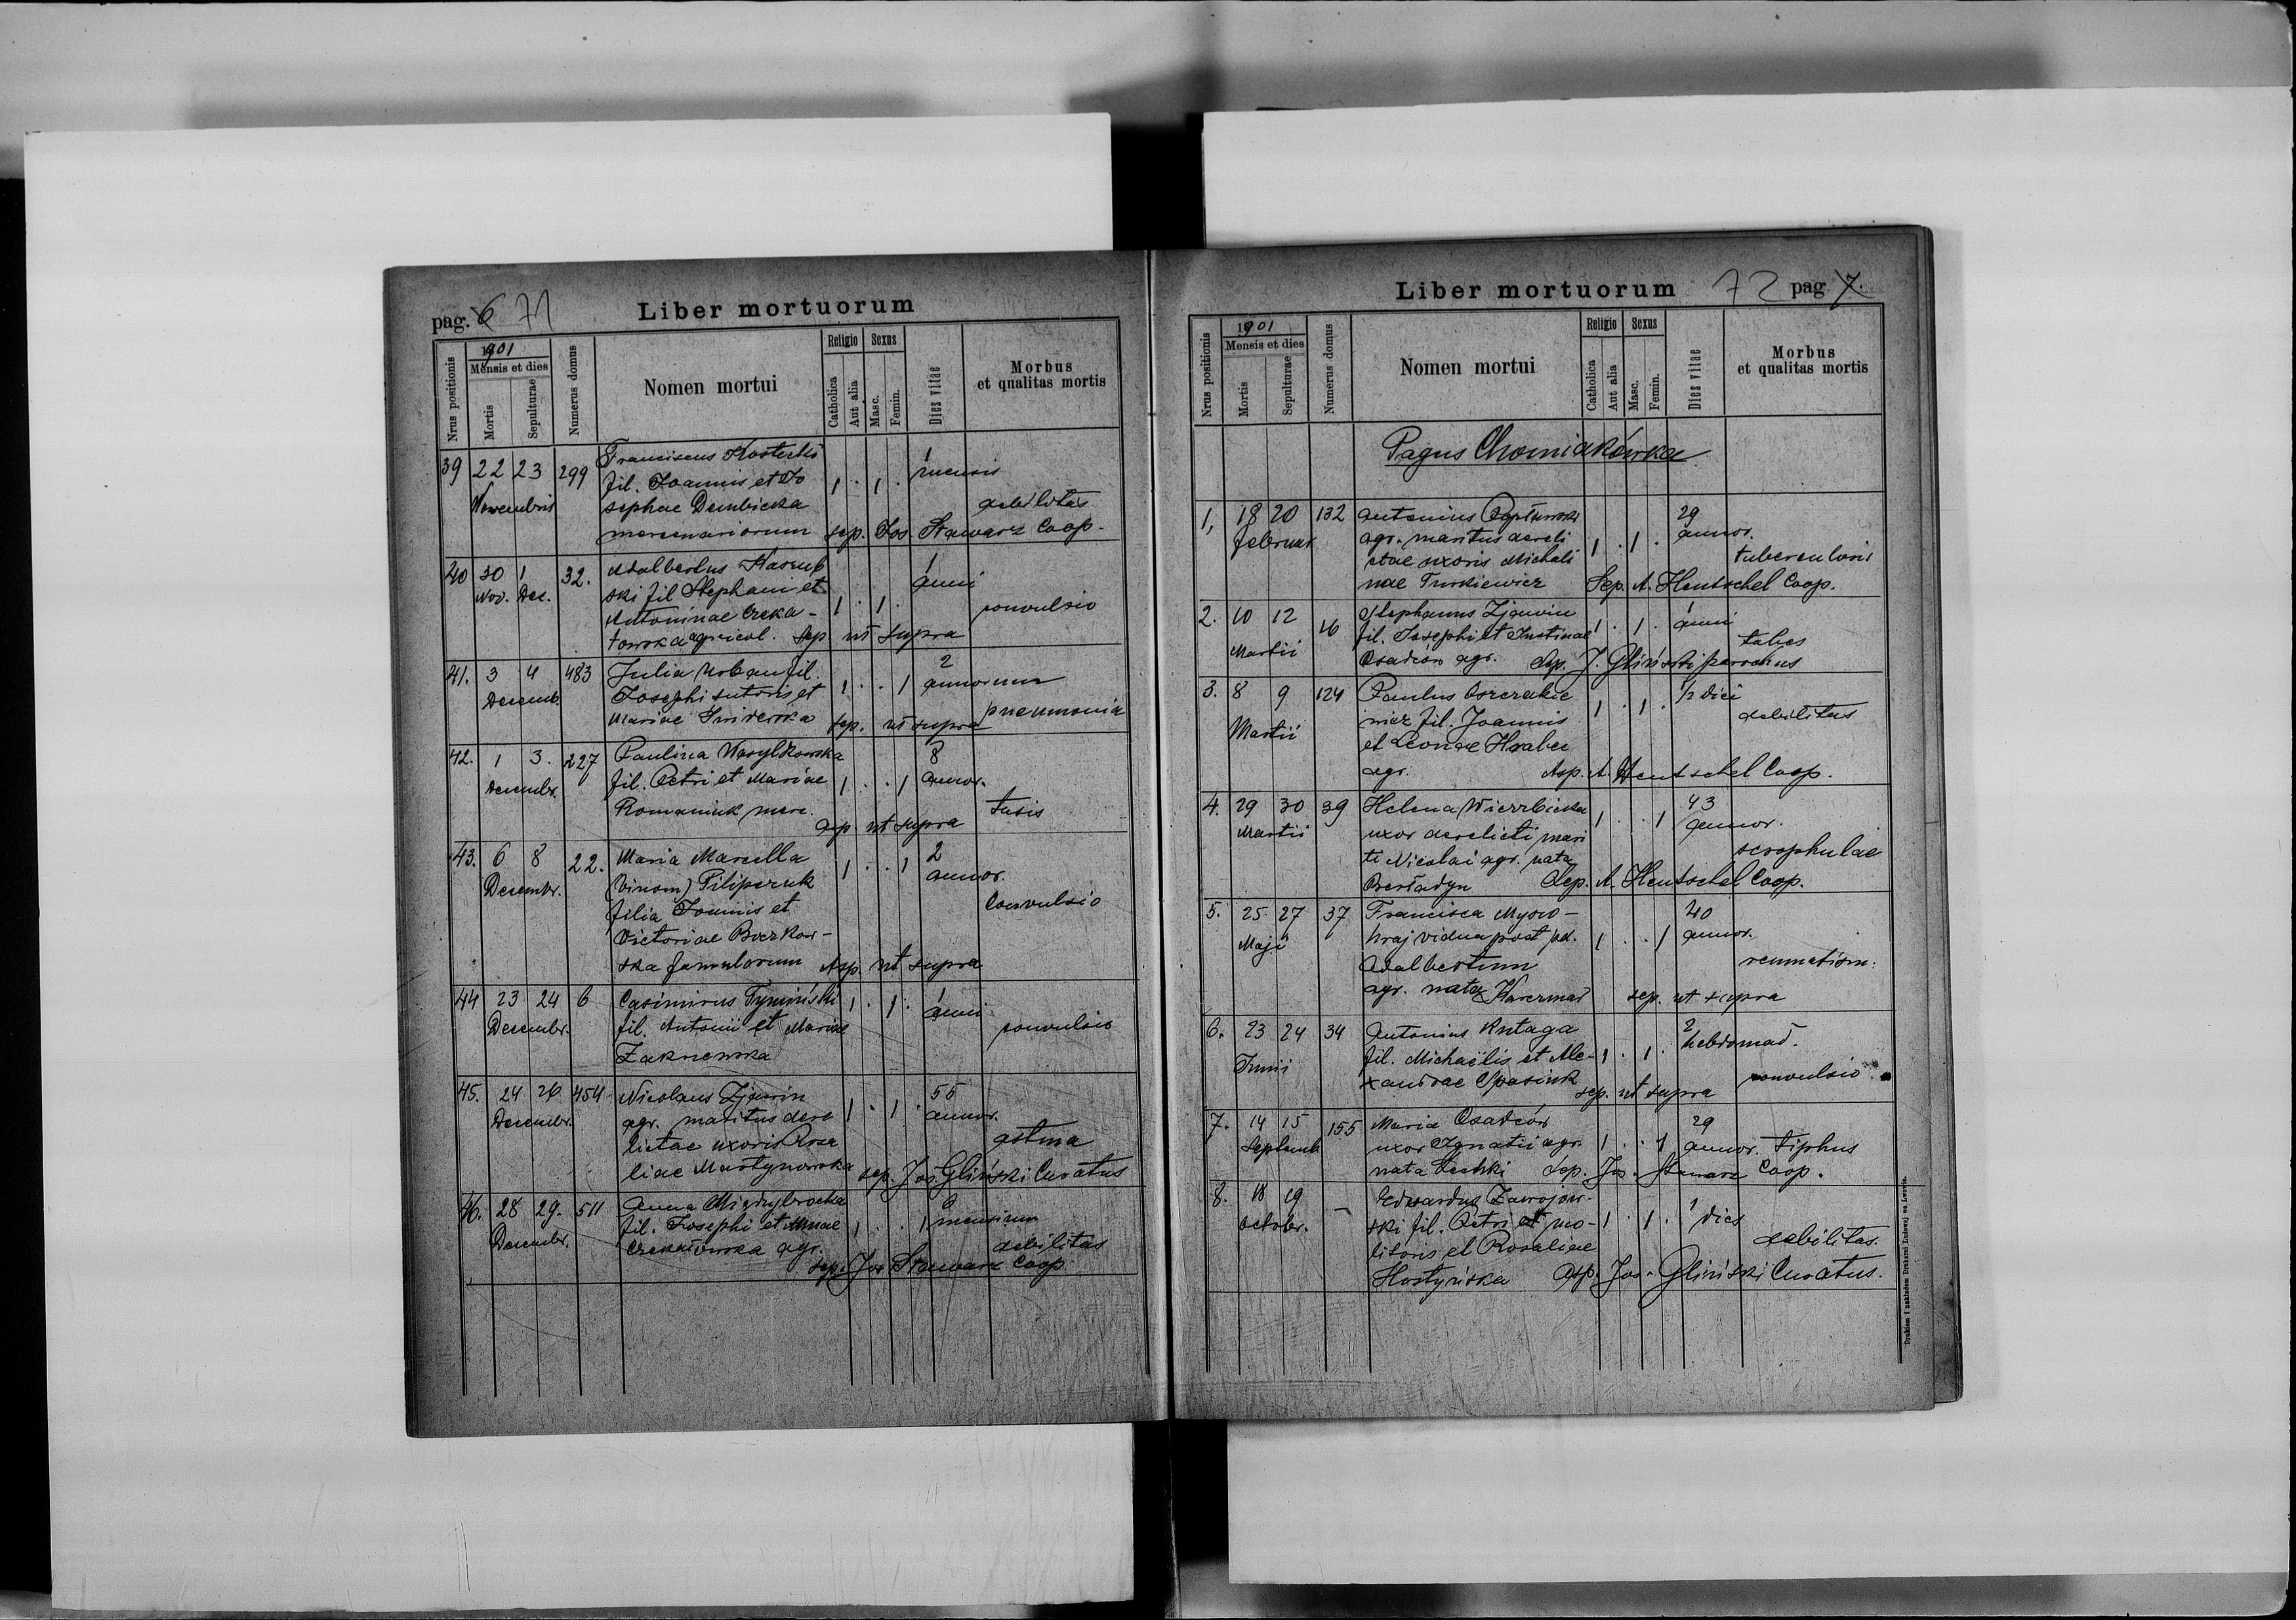 pag. 6 71
Liber mortuorum
Nrus positionis
1901
Mensis et dies
Mortis
Sepulturae
Numerus domus
Nomen mortui
Religio
Catholica
Aut alia
Sexus
Masc.
Femin.
Dies vitae
Morbus
et qualitas mortis
39 22 23 299 Franciscus Kosterski
fil. Joannis et Jo 1 . 1 . 1 mensis
Novembris sephae Dembicka debilitas
mercenariorum sep. Jos. Stawarz Coop.
40 30 1 32. Adalbertus
Nov. Dec. ski fil Stephani et 1 . 1 . 1 anni
Antoninae Czeka- convulsio
towska agricol. sep. ut supra
41. 3 4 483 Julia Urban fil. 2
Decemb. Josephi sutoris et 1 . . 1 annorum
Mariae sep. ut supra pneumonia
42. 1 3. 227 Paulina Wasylkowska 8
Decembr. fil. Petri et Mariae 1 . . 1 annor.
Romaniuk merc. sep. ut supra tusis
43. 6 8 22. Maria Marcella 1 . . 1 2
Decembr. (binom) Pilipczuk annor.
filia Joannis et Convulsio
Victoriae Boczkow-
ska famulorum sep. ut supra
44 23 24 6 Casimirus Tymiński 1 . 1 . 1 anni
Decembr. fil. Antonii et Mariae convulsio
Zakrzewska
45. 24 26 454 Nicolaus Zjawin 55
Decembr. agr. maritus dere 1 . 1 . annor.
lictae uxoris Rosa astma
liae Martynowska sep. Jos. Gliński Curatus
46. 28 29. 511 Anna Międzybrocka 6
Decembr. fil. Josephi et Annae 1 . . 1 mensium
Czekałowska agr. debilitas
sep. Jos Stawarz Coop.
Liber mortuorum 72 pag 7.
Nrus positionis
1901
Mensis et dies
Mortis
Sepulturae
Numerus domus
Nomen mortui
Religio
Catholica
Aut alia
Sexus
Masc.
Femin.
Dies vitae
Morbus
et qualitas mortis
Pagus Chomiakówka
1, 18 20 132 Antonius 29
Februar agr. maritus dereli 1 . 1 . annor.
ctae uxoris Michali tuberculosis
nae Turkiewicz Sep. A. Hentschel Coop.
2. 10 12 16 Stephanus Zjawin 1 . 1 . 1 anni
Martii fil. Josephi et Justinae tabes
Osadców agr. Sep. J. Gliński parochus
3. 8 9 124 Paulus 1 . 1 . 1/2 diei
Martii wicz fil. Joannis debilitas
et Leonae Hrabec
agr. sep. A. Hentschel Coop.
4. 29 30 39 Helena Wierzbicka 1 . . 1 43
Martii uxor derelicti mari annor.
ti Nicolai agr. nata scrophulae
Berladyn Sep. A. Hentschel Coop.
5. 25 27 37 Francisca Mysio- 40
Maji kraj vidua post pd. 1 . . 1 annor.
Adalbertum reumatism.
agr. nata Karczmar sep. ut supra
6. 23 24 34 Antonius Rutaga 2
Junii fil. Michaëlis et Ale- 1 . 1 . hebdomad.
xandrae Spasiuk convulsio
sep. ut supra
7. 14 15 155 Maria Osadców 29
Septemb uxor Ignatii agr. 1 . . 1 annor. tiphus
nata Leshki Sep. Jos. Stawarz Coop.
8. 18 19 – Edwardus Zawojow-
Octobr. ski fil. Petri et mo- 1 . 1 . 1 dies
litoris et Rosaliae debilitas.
Hostyńska sep. Jos. Gliński Curatus.
Drukiem i nakładem Drukarni Ludowej we Lwowie.